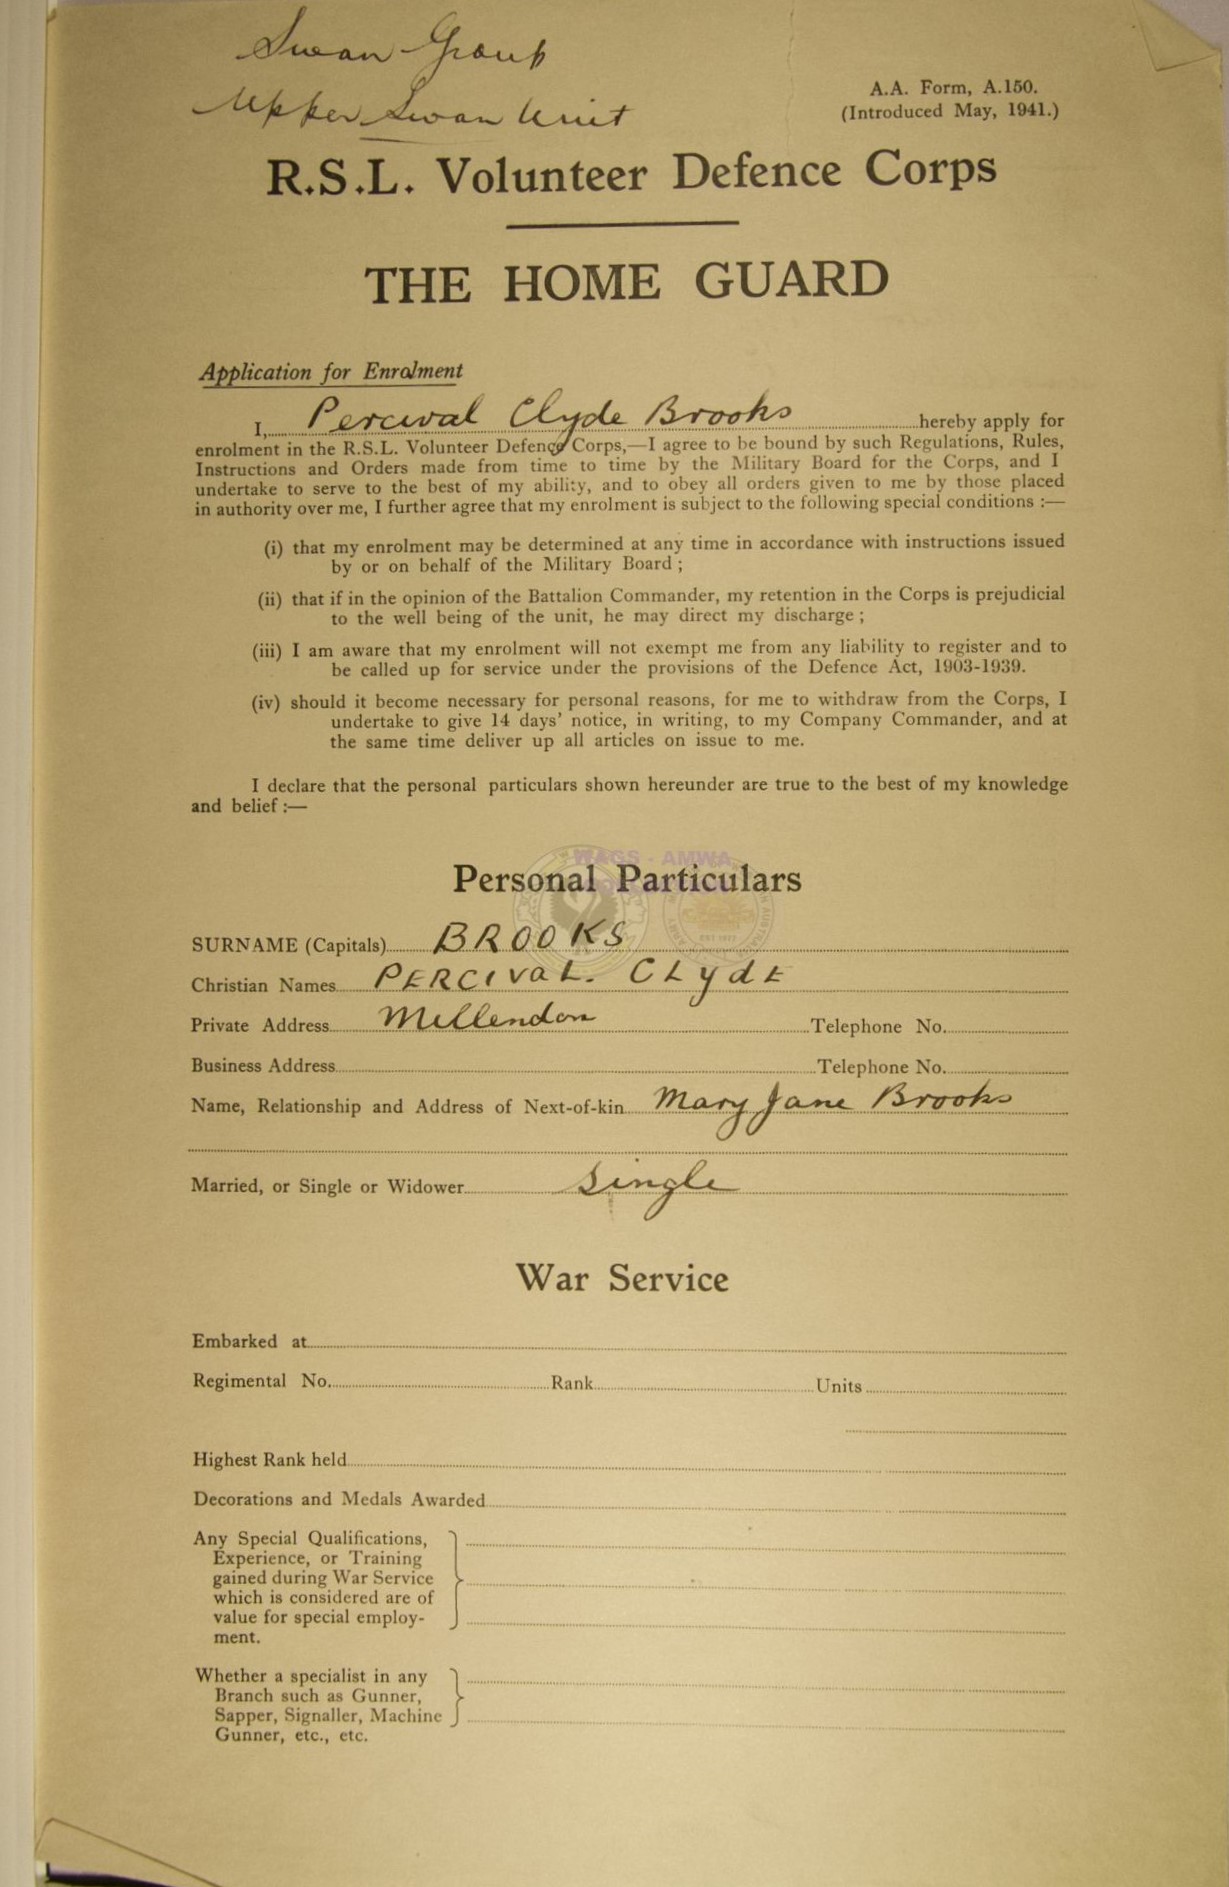 Swan Group
Upper Swan Unit
A.A. Form, A.150.
(Introduced May, 1941.)
R.S.L. Volunteer Defence Corps
THE HOME GUARD
Application for Enrolment
I, Percival Clyde Brooks hereby apply for
enrolment in the R.S.L. Volunteer Defence Corps,—I agree to be bound by such Regulations, Rules,
Instructions and Orders made from time to time by the Military Board for the Corps, and I
undertake to serve to the best of my ability, and to obey all orders given to me by those placed
in authority over me, I further agree that my enrolment is subject to the following special conditions :—
(i) that my enrolment may be determined at any time in accordance with instructions issued
by or on behalf of the Military Board ;
(ii) that if in the opinion of the Battalion Commander, my retention in the Corps is prejudicial
to the well being of the unit, he may direct my discharge ;
(iii) I am aware that my enrolment will not exempt me from any liability to register and to
be called up for service under the provisions of the Defence Act, 1903-1939.
(iv) should it become necessary for personal reasons, for me to withdraw from the Corps, I
undertake to give 14 days' notice, in writing, to my Company Commander, and at
the same time deliver up all articles on issue to me.
I declare that the personal particulars shown hereunder are true to the best of my knowledge
and belief :—
WAGS - AMWA
Personal Particulars
EST 1977
SURNAME (Capitals) BROOKS
Christian Names PERCIVaL. CLydE
Private Address Mellendon Telephone No.
Business Address Telephone No.
Name, Relationship and Address of Next-of-kin Mary Jane Brooks
Married, or Single or Widower Single
War Service
Embarked at
Regimental No. Rank Units
Highest Rank held
Decorations and Medals Awarded
Any Special Qualifications,
Experience, or Training
gained during War Service
which is considered are of
value for special employ-
ment.
Whether a specialist in any
Branch such as Gunner,
Sapper, Signaller, Machine
Gunner, etc., etc.